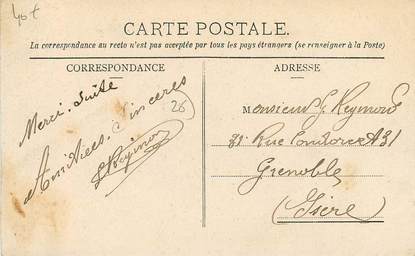 40 f
CARTE POSTALE.
La correspondance au recto n'est pas acceptée par tous les pays étrangers (se renseigner à la Poste)
CORRESPONDANCE
Merci. Suite
Amitiées. Sincères
26
ADRESSE
Monsieur J. Reymond
31 Rue Condorcet 31
Grenoble
(Isère)